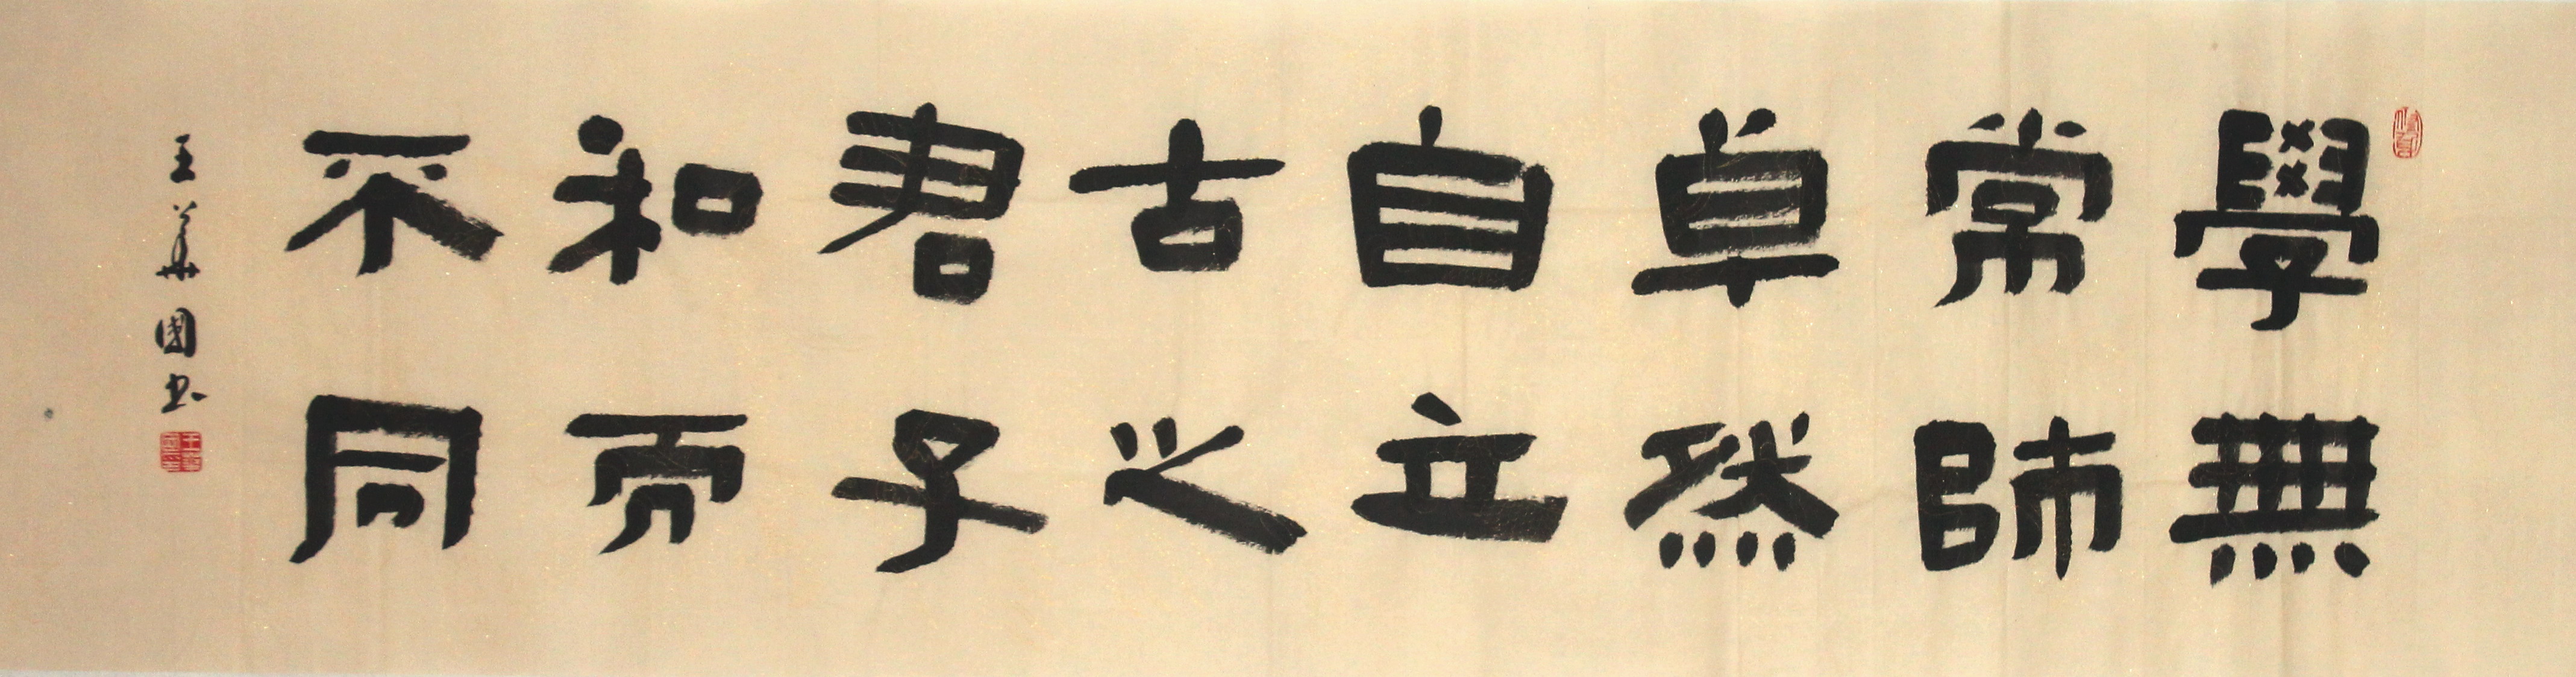 學無
常師
卓然
自立
古之
君子
和而
不同
王華國书